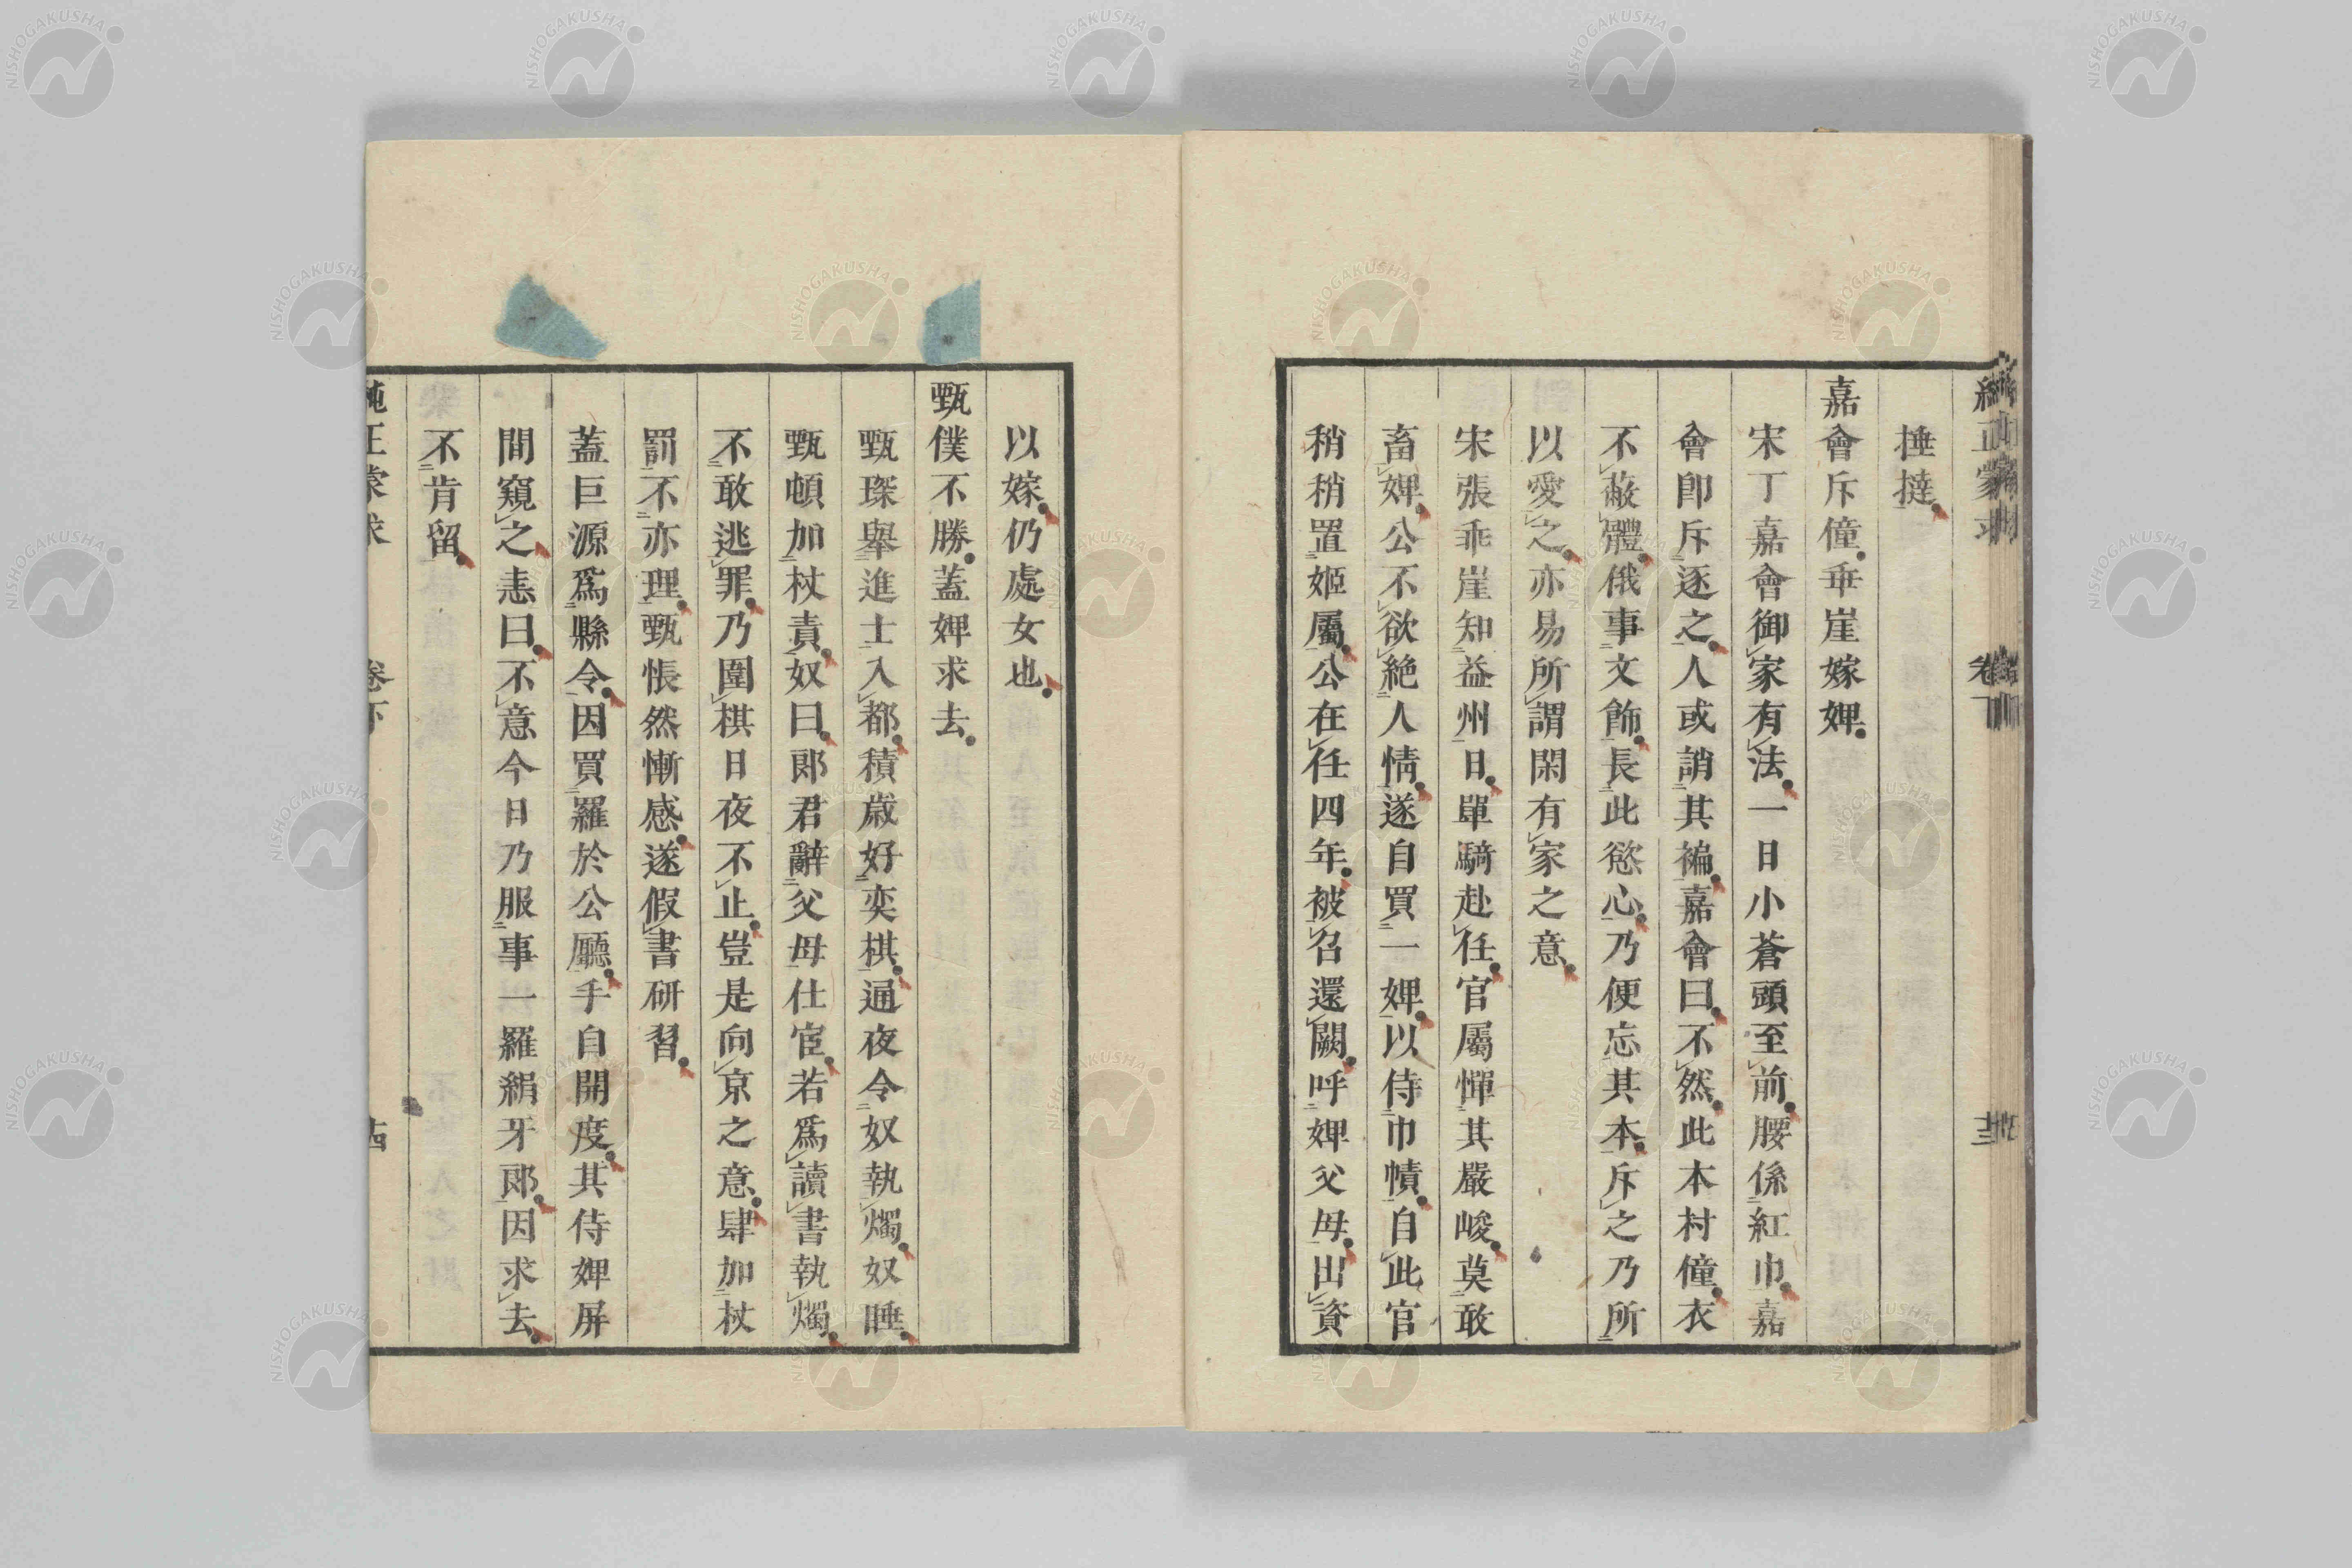 純正蒙求 卷下
捶撻
嘉會斥僮 乖崖嫁婢
宋丁嘉會御家有法一日小蒼頭至前腰係紅巾嘉
會卽斥逐之人或誚其褊嘉會曰不然此本村僮衣
不蔽體俄事文飾長此慾心乃便忘其本斥之乃所
以愛之亦易所謂閑有家之意
宋張乖崖知益州日單騎赴任官屬憚其嚴峻莫敢
畜婢公不欲絕人情遂自買一婢以侍巾幘自此官
稍稍置姬屬公在任四年被召還闕呼婢父母出資
以嫁仍處女也
甄僕不勝 蓋婢求去
甄琛舉進士入都積歲好奕棋通夜令奴執燭奴睡
甄頓加杖責奴曰郞君辭父母仕宦若爲讀書執燭
不敢逃罪乃圍棋日夜不止豈是向京之意肆加杖
罰不亦理甄悵然慚感遂假書研習
蓋巨源爲縣令因買羅於公廳手自開度其侍婢屏
間窺之恚曰不意今日乃服事一羅絹牙郞因求去
不肯留
純正蒙求 卷下
NISHOGAKUSHA